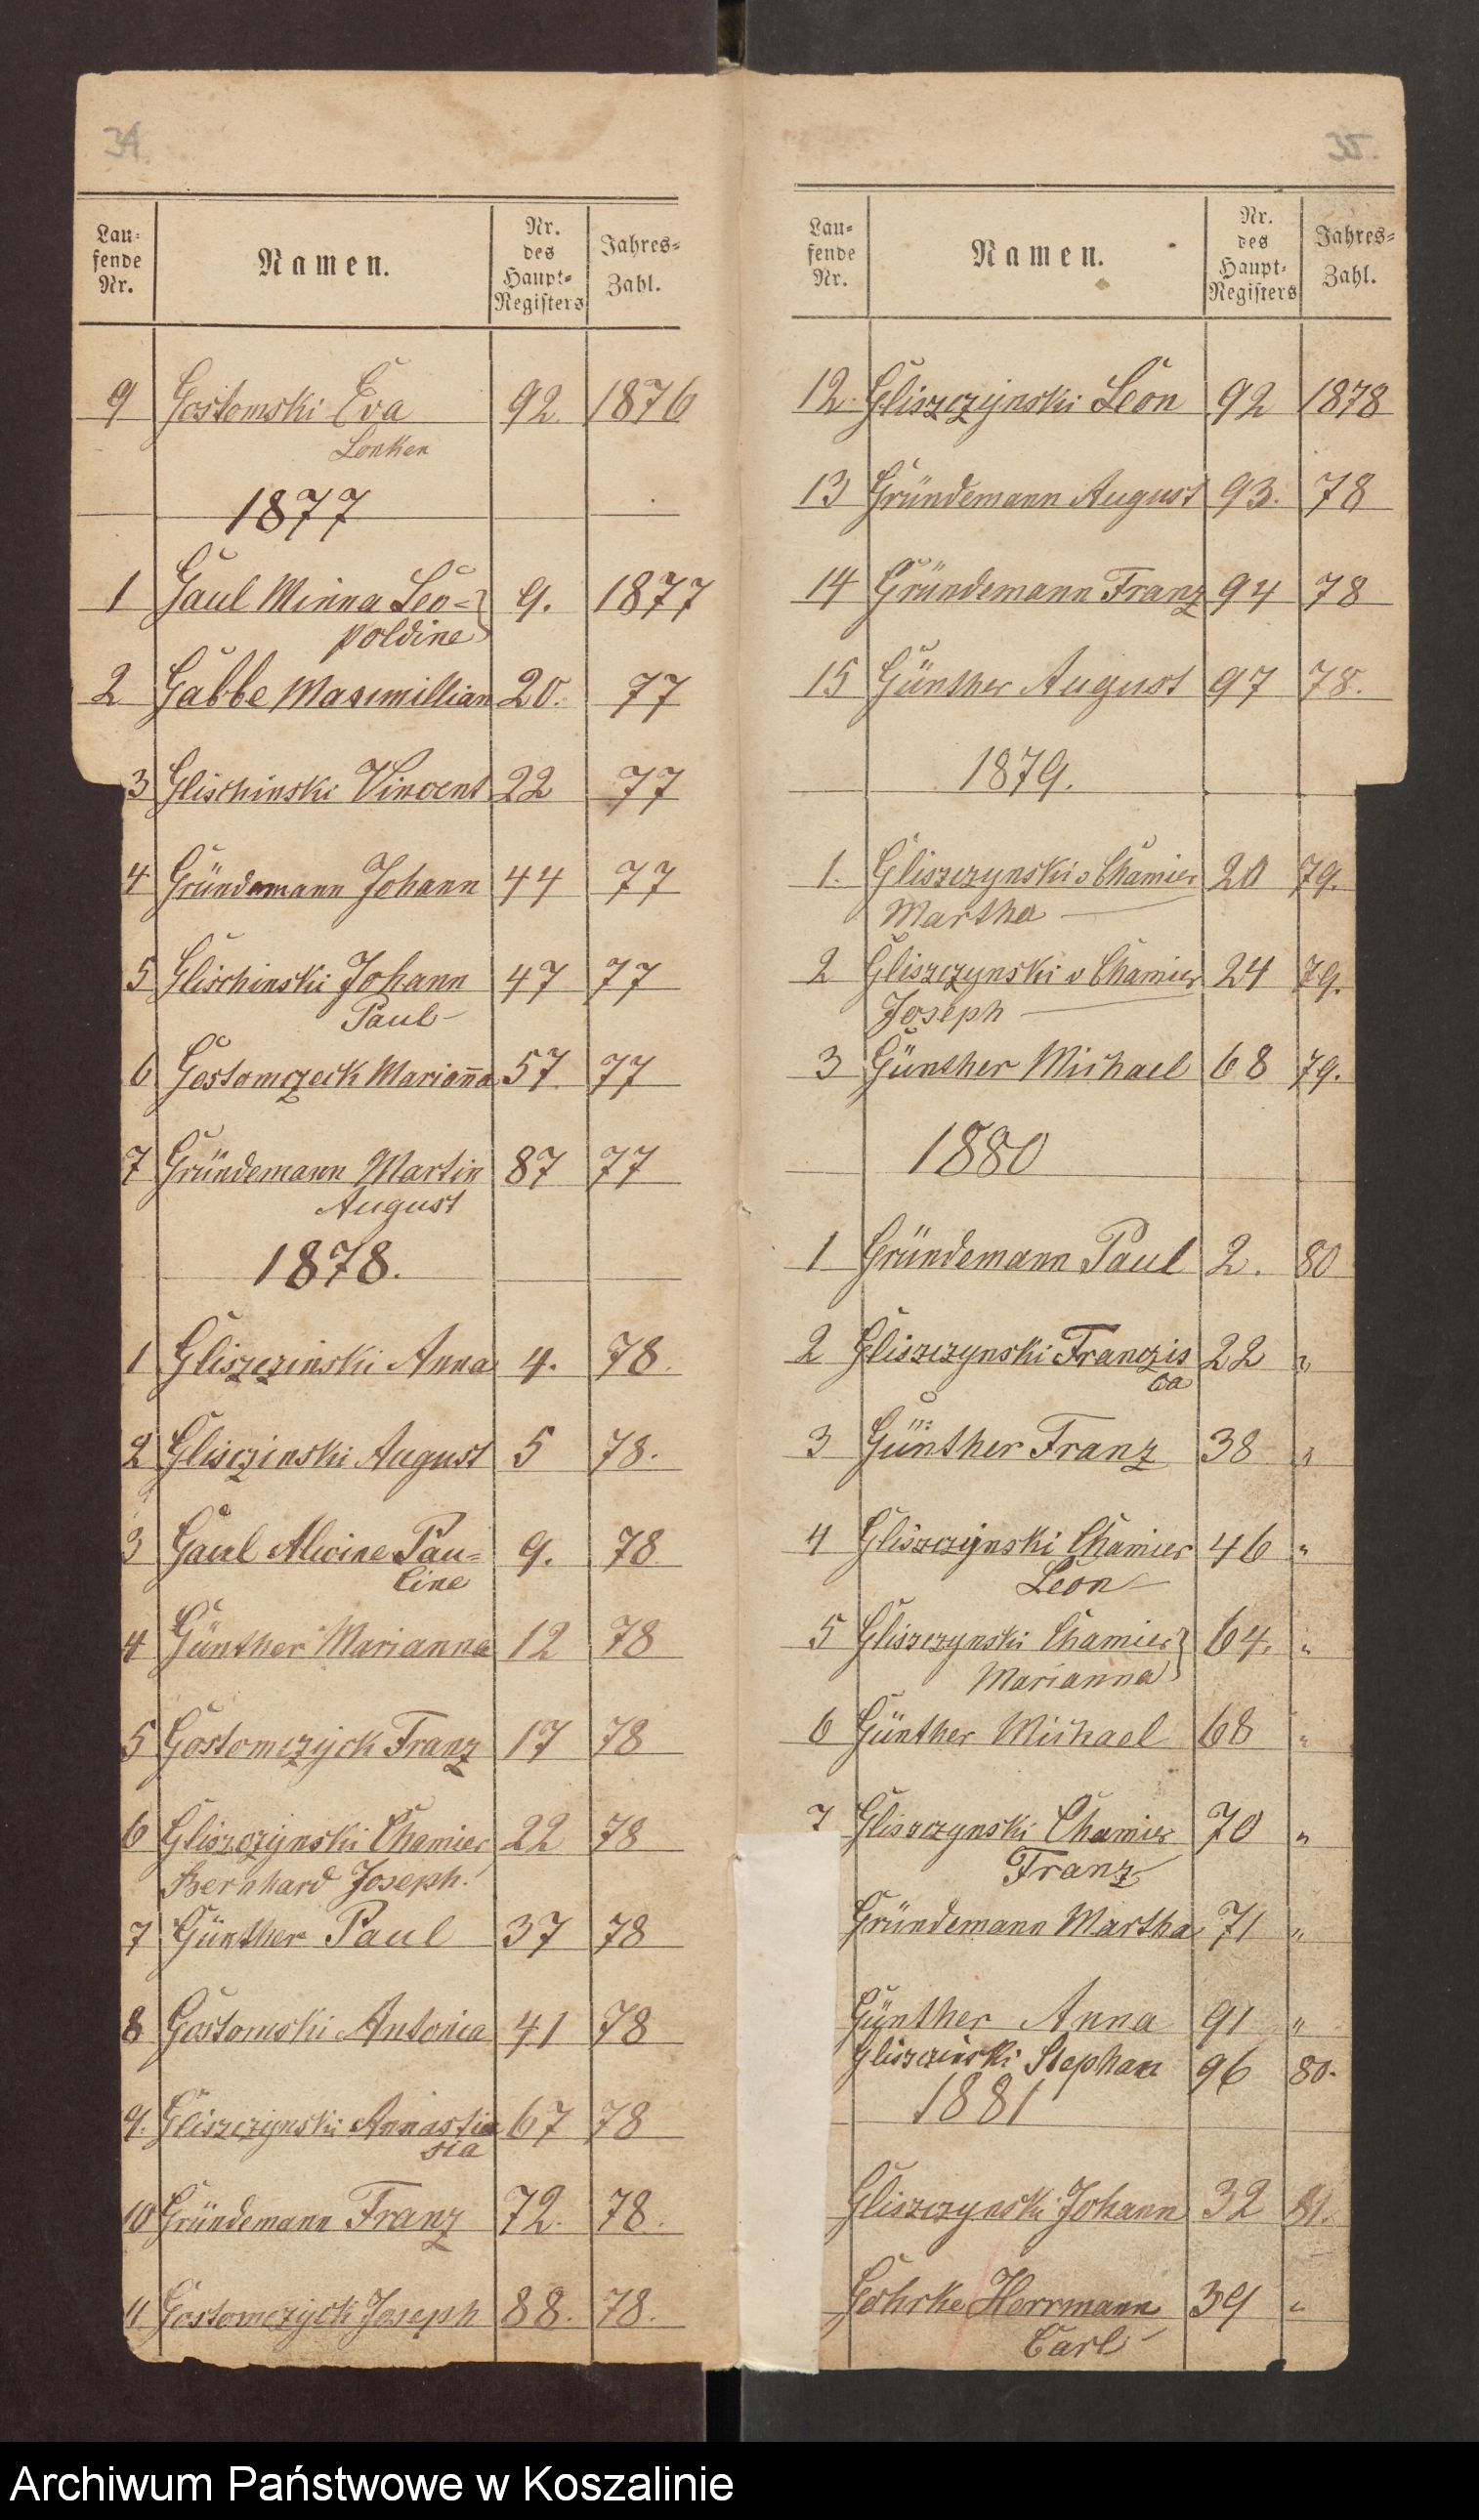 34.
Lau-
fende
Nr.
Namen.
Nr.
des
Haupt-
Registers
Jahres-
Zahl.
9 Gostomski Eva 92. 1876
Lonken
1877
1 Gaul Minna Leo= 9. 1877
poldine
2 Gabbe Maximillian 20. 77
3 Glischinski Vincent 22 77
4 Gründemann Johann 44 77
5 Glischinski Johann 47 77
Paul
6 Gostomczeck Marianna 57. 77
7 Gründemann Martin 87 77
August
1878.
1 Gliszczinski Anna 4. 78.
2 Glisczinski August 5 78.
3 Gaul Alwine Pau= 9. 78
line
4 Günther Marianna 12 78
5 Gostomczyck Franz 17 78
6 Gliszczynski Chamier 22 78
Bernhard Joseph.
7 Günther Paul 37 78
8 Gostomski Antonia 41 78
9. Gliszczynski Annastia 67 78
sia
10 Gründemann Franz 72. 78.
11 Gostomczyck Joseph 88. 78.
35.
Lau-
fende
Nr.
Namen.
Nr.
des
Haupt-
Registers
Jahres-
Zahl.
12. Gliszczynski Leon 92 1878
13 Gründemann August 93. 78
14 Gründemann Franz 94 78
15 Günther August 97 78.
1879.
1. Gliszczynski v Chamier 20 79.
Martha
2 Gliszczynski v Chamier 24 79.
Joseph
3 Günther Michael 68 79.
1880
1 Gründemann Paul 2. 80
2 Gliszczynski Franzis 22 "
ca
3 Günther Franz 38 "
4 Gliszczynski Chamier 46 "
Leon
5 Gliszczynski Chamier 64. "
Marianna
6 Günther Michael 68 "
7 Gliszczynski Chamier 70 "
Franz
Gründemann Martha 71 "
Günther Anna 91 "
Gliszczinski Stephan 96 80.
1881
Gliszczynski Johann 32 81.
Gehrke Herrmann 39 "
Carl
Archiwum Państwowe w Koszalinie